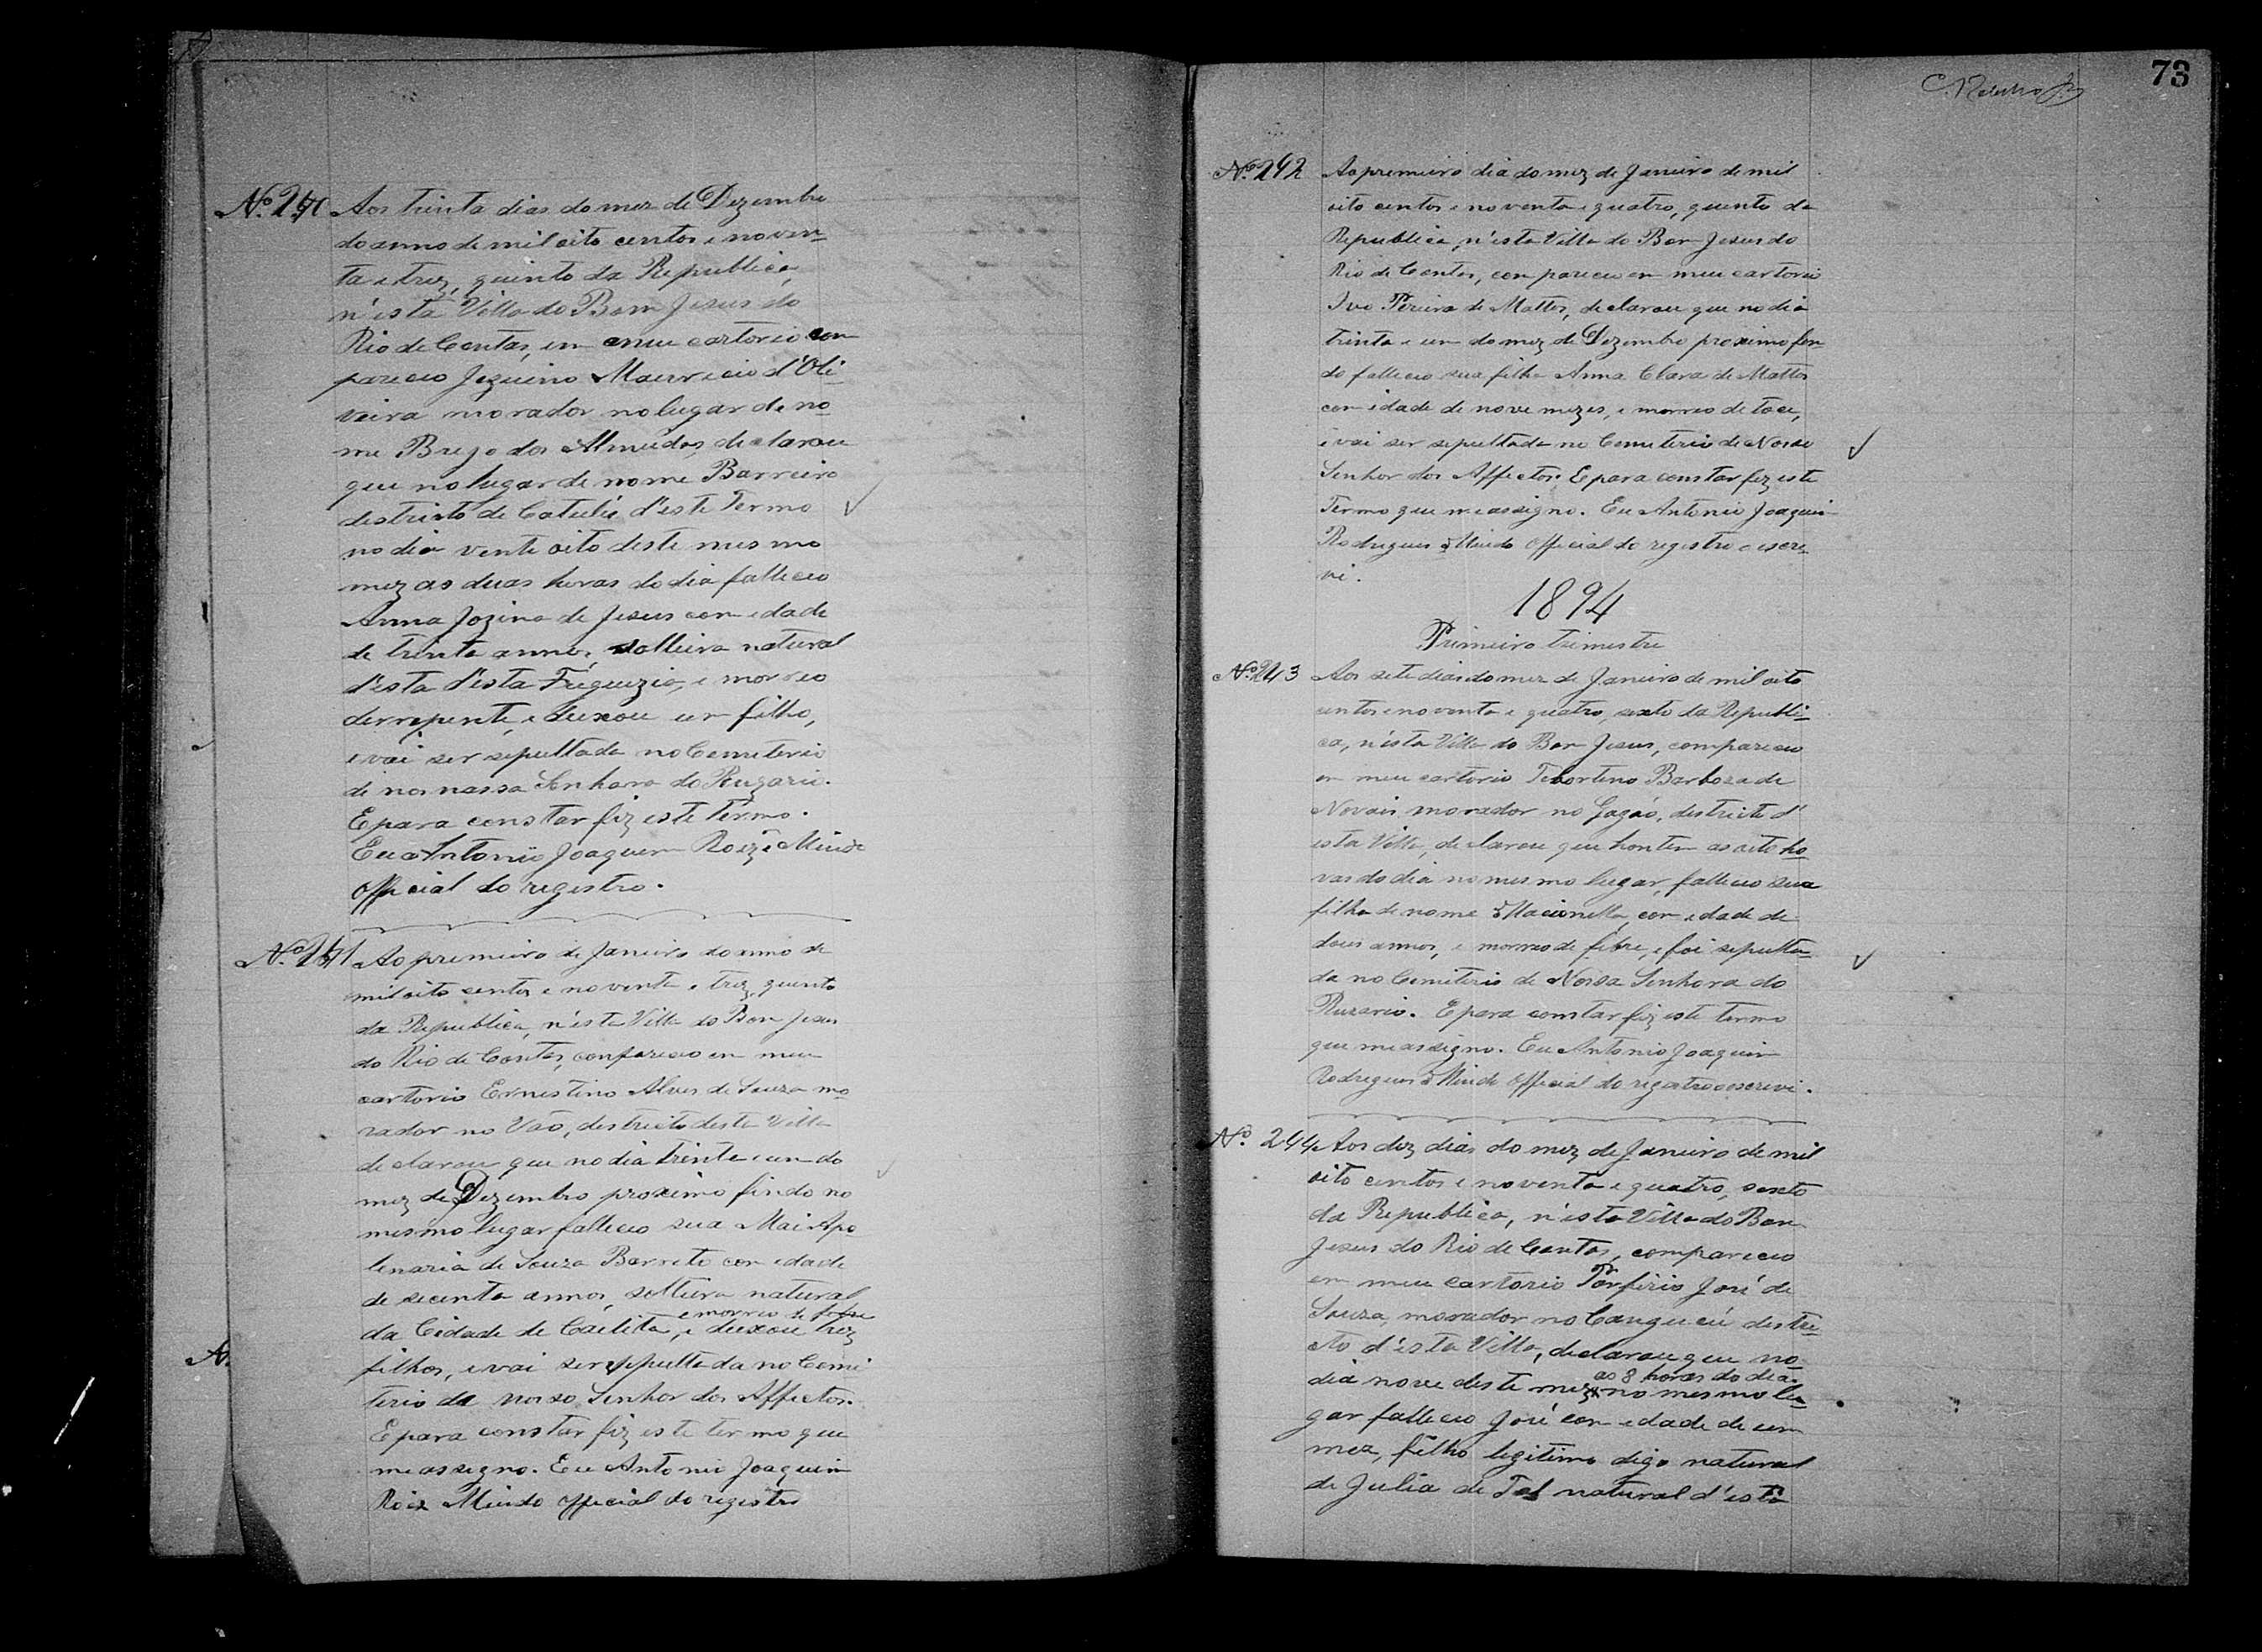 Nº 240 Aos trinta dias do mez de Dezembro
do anno de mil oito centos e noven-
ta e trez, quinto da Republica,
n'esta Villa do Bom Jesus do
Rio de Contas, em meu cartorio com
pareceo Jezuino Mauricio d'Oli-
veira morador no lugar de no-
me Brejo dos Almeidas, declarou
que no lugar de nome Barreiro
destricto de Catulés d'este Termo
no dia vente oito deste mesmo
mez as duas horas do dia falleceo
Anna Jozina de Jesus com edade
de trinta annos, solteira natural
d'esta d'esta Freguezia, e morreo
derrepente, e deixou um filho,
e vai ser sepultada no Cemeterio
de nos nassa Senhora do Ruzario.
E para constar fiz este termo.
Eu Antonio Joaquim Roiz Miudo
official do registro.
Nº 241 Ao premeiro de Janeiro do anno de
mil oito centos e noventa e trez, quento
da Republica, n'esta Villa do Bom Jesus
do Rio de Contas, compareceo em meu
cartorio Ernestino Alves de Souza mo-
rador no Vão, destricto desta Villa
declarou que no dia trinta e um do
mez de Dezembro proximo findo no
mesmo lugar falleceo sua Mai Apo
lenaria de Souza Barreto com edade
de secenta annos, solteira natural
e morreo de febre
da Cidade de Caitité, e deixou trez
filhos, e vai ser sepultada no Cemi
terio de nosso Senhor dos Affectos.
E para constar fiz este termo que
me assegno. Eu Antonio Joaquim
Roiz Miudo official do registro
73
Nº 242 Ao premeiro dia do mez de Janeiro de mil
oito centos e noventa e quatro, quento da
Republica, n'esta Villa do Bom Jesus do
Rio de Contas, compareceu em meu cartorio
Ivo Pereira de Mattos, declarou que no dia
trinta e um do mez de Dezembro proximo fen-
do falleceo sua filha Anna Clara de Mattos
com edade de nove mezes, e morreo de toce,
e vai ser sepultada no Cemeterio de Nosso
Senhor dos Affectos. E para constar fez este
Termo que me assigno. Eu Antonio Joaquim
Rodrigues Miudo official do registro o escre-
vi.
1894
Primeiro trimestre
Nº 243 Aos sete dias do mez de Janeiro de mil oito
centos e noventa e quatro, sexto da Republi-
ca, n'esta Villa do Bom Jesus, compareceu
em meu cartorio Teburtino Barboza de
Novais morador no Gagáo, destricto d'
esta Villa, declarou que hontem as oito ho-
ras do dia no mesmo lugar, falleceo sua
filha de nome Macionilla, com edade de
dous annos, e morreo de febre, e foi sepulta-
da no Cemiterio de Nossa Senhora do
Ruzario. E para constar fiz este termo
que me assigno. Eu Antonio Joaquim
Rodrigues Miudo official do registro o escrevi.
Nº 244 Aos dez dias do mez de Janeiro de mil
oito centos e noventa e quatro, sexto
da Republica, n'esta Villa do Bom
Jesus do Rio de Contas, compareceo
em meu cartorio Porfirio José de
Souza, morador no Cangucú destri-
cto d'esta Villa, declarou que no
as 8 horas do dia
dia nove deste mez no mesmo lu-
gar falleceo José com edade de um
mez, filho legitimo digo natural
de Julia de Tal natural d'esta